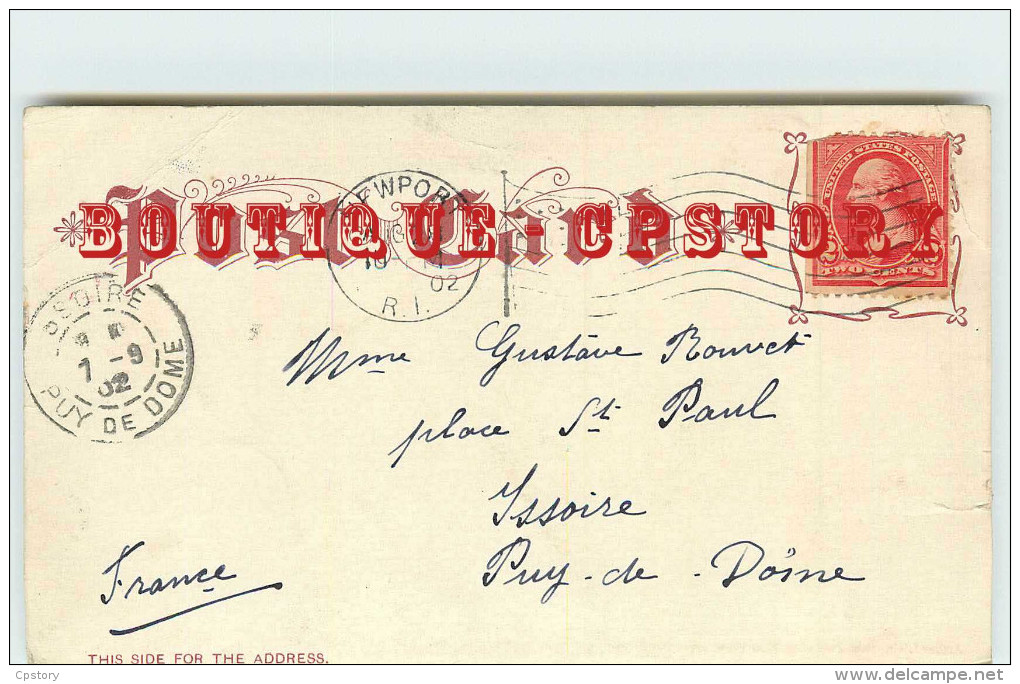 Post Card
BOUTIQUE - CPSTORY
NEWPORT
R.I.
02
UNITED STATES POSTAGE
TWO CENTS
ISSOIRE
7 -9
02
PUY DE DOME
Mme Gustave Rouvet
place St Paul
Issoire
Puy-de-Dôme
France
THIS SIDE FOR THE ADDRESS.
Cpstory
www.delcampe.net